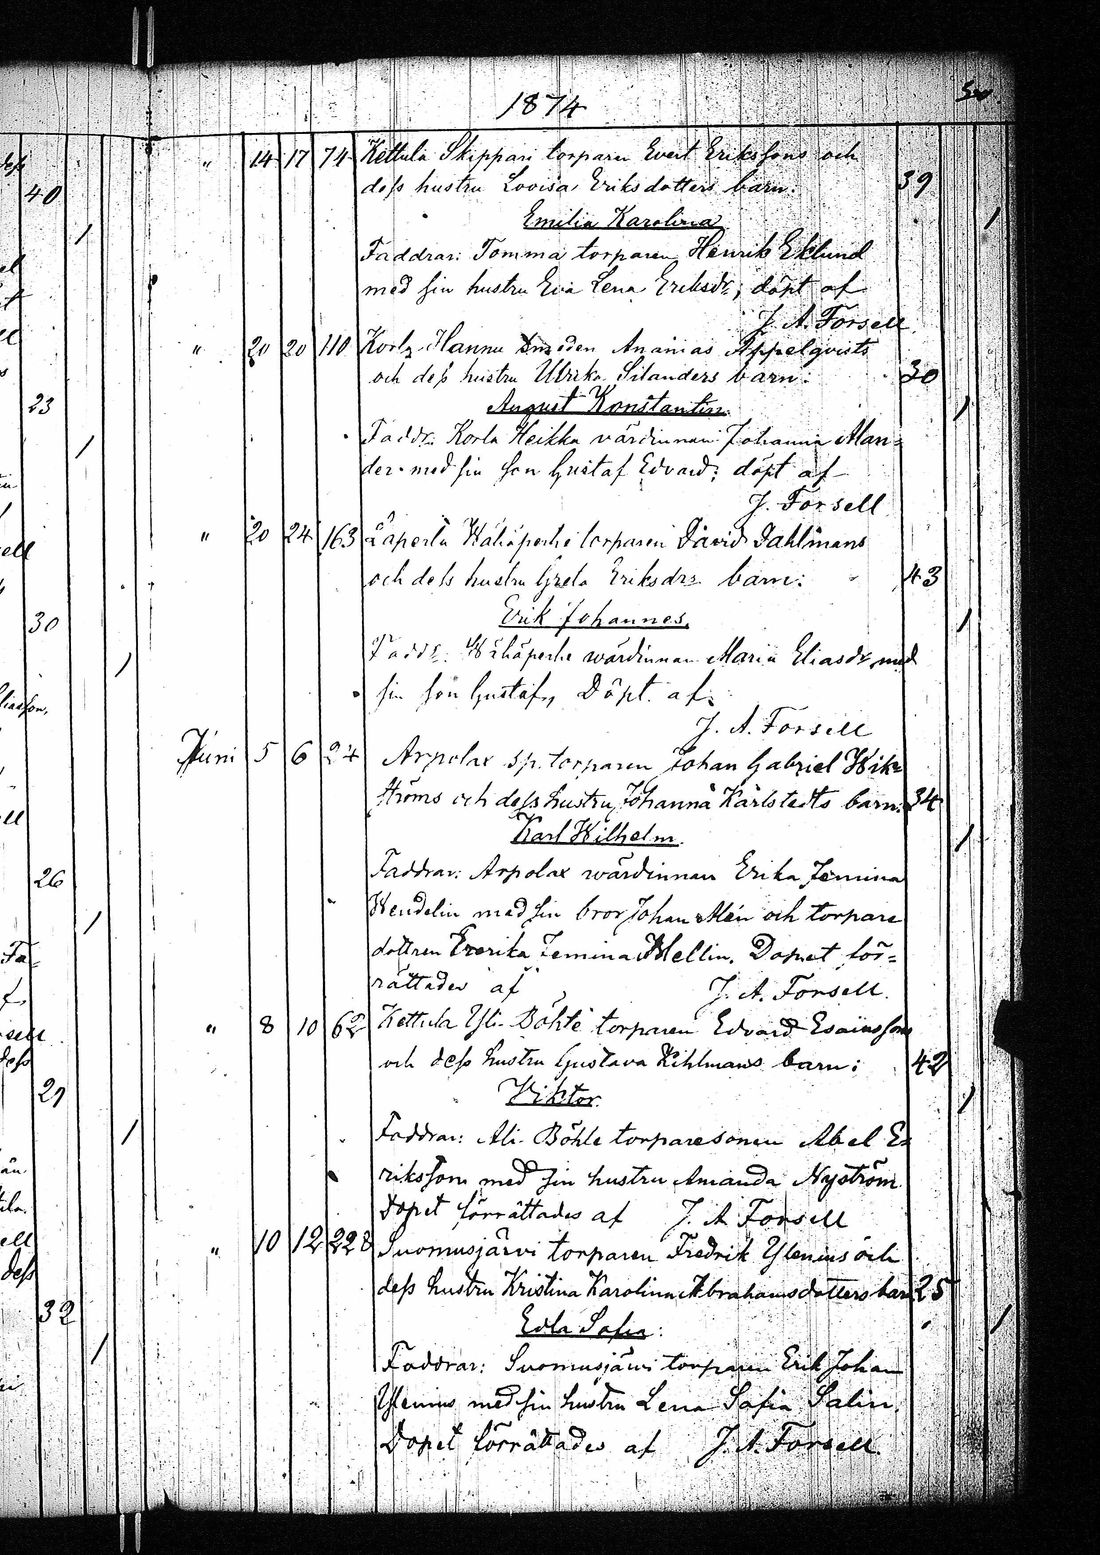 1874
" 14 17 74 Kettula Skippari torparen Evert Erikssons och
dess hustru Lovisa Eriksdotters barn. 39
Emilia Karolina
Faddrar: Tomma torparen Henrik Eklund
med sin hustru Eva Lena Eriksdr, döpt af
J. A. Forsell.
" 20 20 110 Korla Hannu smeden Ananias Appelqvists
och dess hustru Ulrika Silanders barn: 30
August Konstantin.
Faddr: Korla Heikka värdinnan Johanna Alan=
der med sin son Gustaf Edvard; döpt af
J. Forsell
" 20 24 163 Laperla Wähäperhe torparen David Dahlmans
och dess hustru Greta Eriksdrs barn: 43
Erik Johannes.
Faddr: Wähäperhe wärdinnan Maria Eliasdr med
sin son Gustaf, Döpt af
J. A. Forsell
Juni 5 6 24 Arpolax sp. torparen Johan Gabriel Wik=
ströms och dess hustru Johanna Karlstedts barn. 34
Karl Wilhelm.
Faddrar: Arpolax wärdinnan Erika Jemina
Wendelin med sin bror Johan Alén och torpare
dottren Ererika Jemina Mellin. Dopet för=
rättades af J. A. Forsell.
" 8 10 62 Kettula Yli-Böhle torparen Edvard Esaiassons
och dess hustru Gustava Kihlmans barn: 42
Viktor.
Faddrar: Ali-Böhle torparesonen Abel E=
riksson med sin hustru Amanda Nyström.
Dopet förrättades af J. A. Forsell
" 10 12 228 Suomusjärvi torparen Fredrik Ylenius och
dess hustru Kristina Karolina Abrahamsdotters barn 25
Edla Sofia:
Faddrar: Suomusjärvi torparen Erik Johan
Ylenius med sin hustru Lena Sofia Salin.
Dopet förrättades af J. A. Forsell.
40
23
30
26
29
32